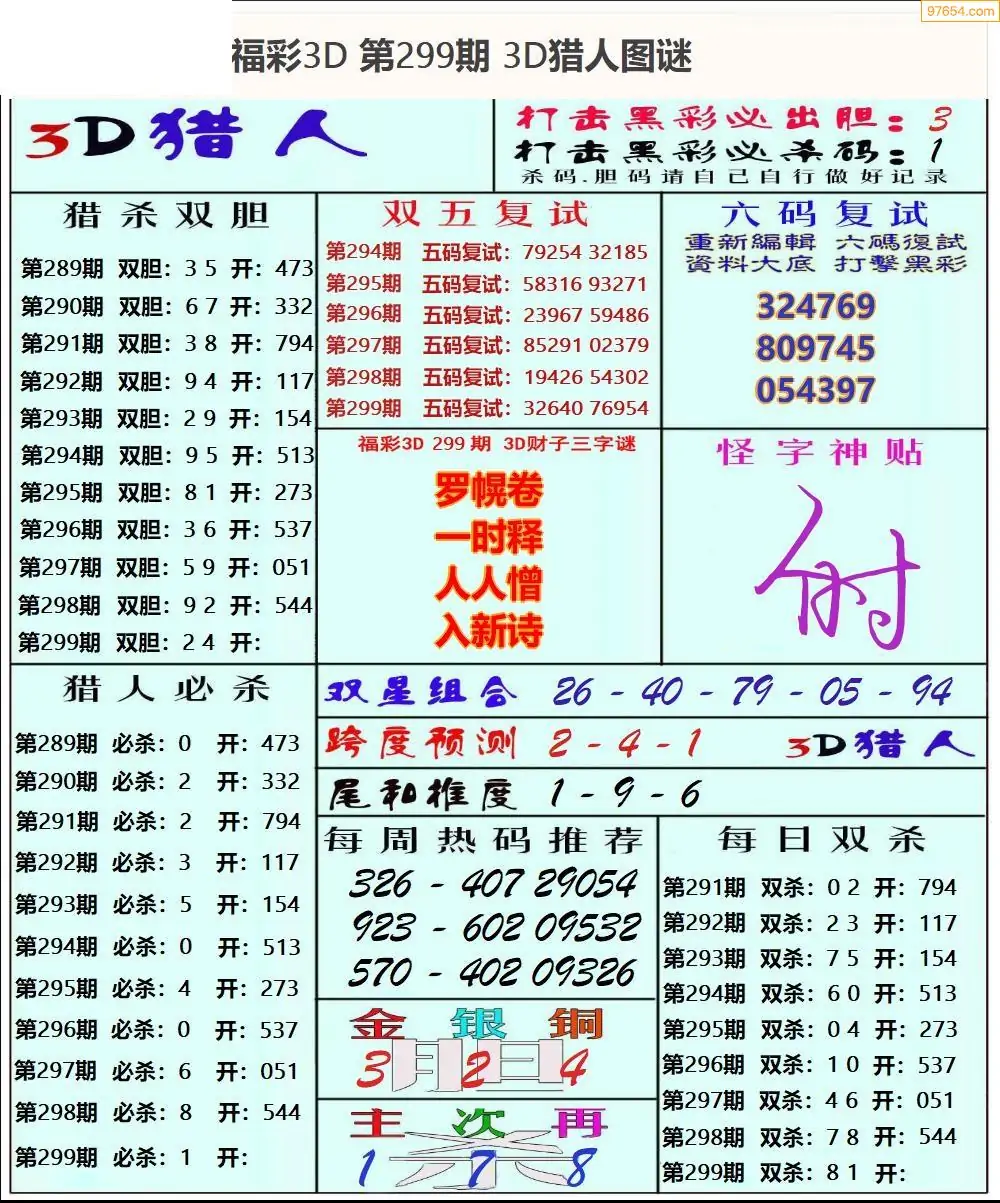 97654.com
福彩3D 第299期 3D猎人图谜
3D猎人
打击黑彩必出胆：3
打击黑彩必杀码：1
杀码.胆码请自己自行做好记录
猎杀双胆
第289期 双胆：3 5 开：473
第290期 双胆：6 7 开：332
第291期 双胆：3 8 开：794
第292期 双胆：9 4 开：117
第293期 双胆：2 9 开：154
第294期 双胆：9 5 开：513
第295期 双胆：8 1 开：273
第296期 双胆：3 6 开：537
第297期 双胆：5 9 开：051
第298期 双胆：9 2 开：544
第299期 双胆：2 4 开：
双五复试
第294期 五码复试：79254 32185
第295期 五码复试：58316 93271
第296期 五码复试：23967 59486
第297期 五码复试：85291 02379
第298期 五码复试：19426 54302
第299期 五码复试：32640 76954
六码复试
重新編輯 六碼復試
資料大底 打擊黑彩
324769
809745
054397
福彩3D 299 期 3D财子三字谜
罗幌卷
一时释
人人憎
入新诗
怪字神贴
猎人必杀
第289期 必杀：0 开：473
第290期 必杀：2 开：332
第291期 必杀：2 开：794
第292期 必杀：3 开：117
第293期 必杀：5 开：154
第294期 必杀：0 开：513
第295期 必杀：4 开：273
第296期 必杀：0 开：537
第297期 必杀：6 开：051
第298期 必杀：8 开：544
第299期 必杀：1 开：
双星组合 26 - 40 - 79 - 05 - 94
跨度预测 2 - 4 - 1 3D猎人
尾和推度 1 - 9 - 6
每周热码推荐
326 - 407 29054
923 - 602 09532
570 - 402 09326
金 银 铜
胆
3 2 4
主 次 再
杀
1 7 8
每日双杀
第291期 双杀：0 2 开：794
第292期 双杀：2 3 开：117
第293期 双杀：7 5 开：154
第294期 双杀：6 0 开：513
第295期 双杀：0 4 开：273
第296期 双杀：1 0 开：537
第297期 双杀：4 6 开：051
第298期 双杀：7 8 开：544
第299期 双杀：8 1 开：